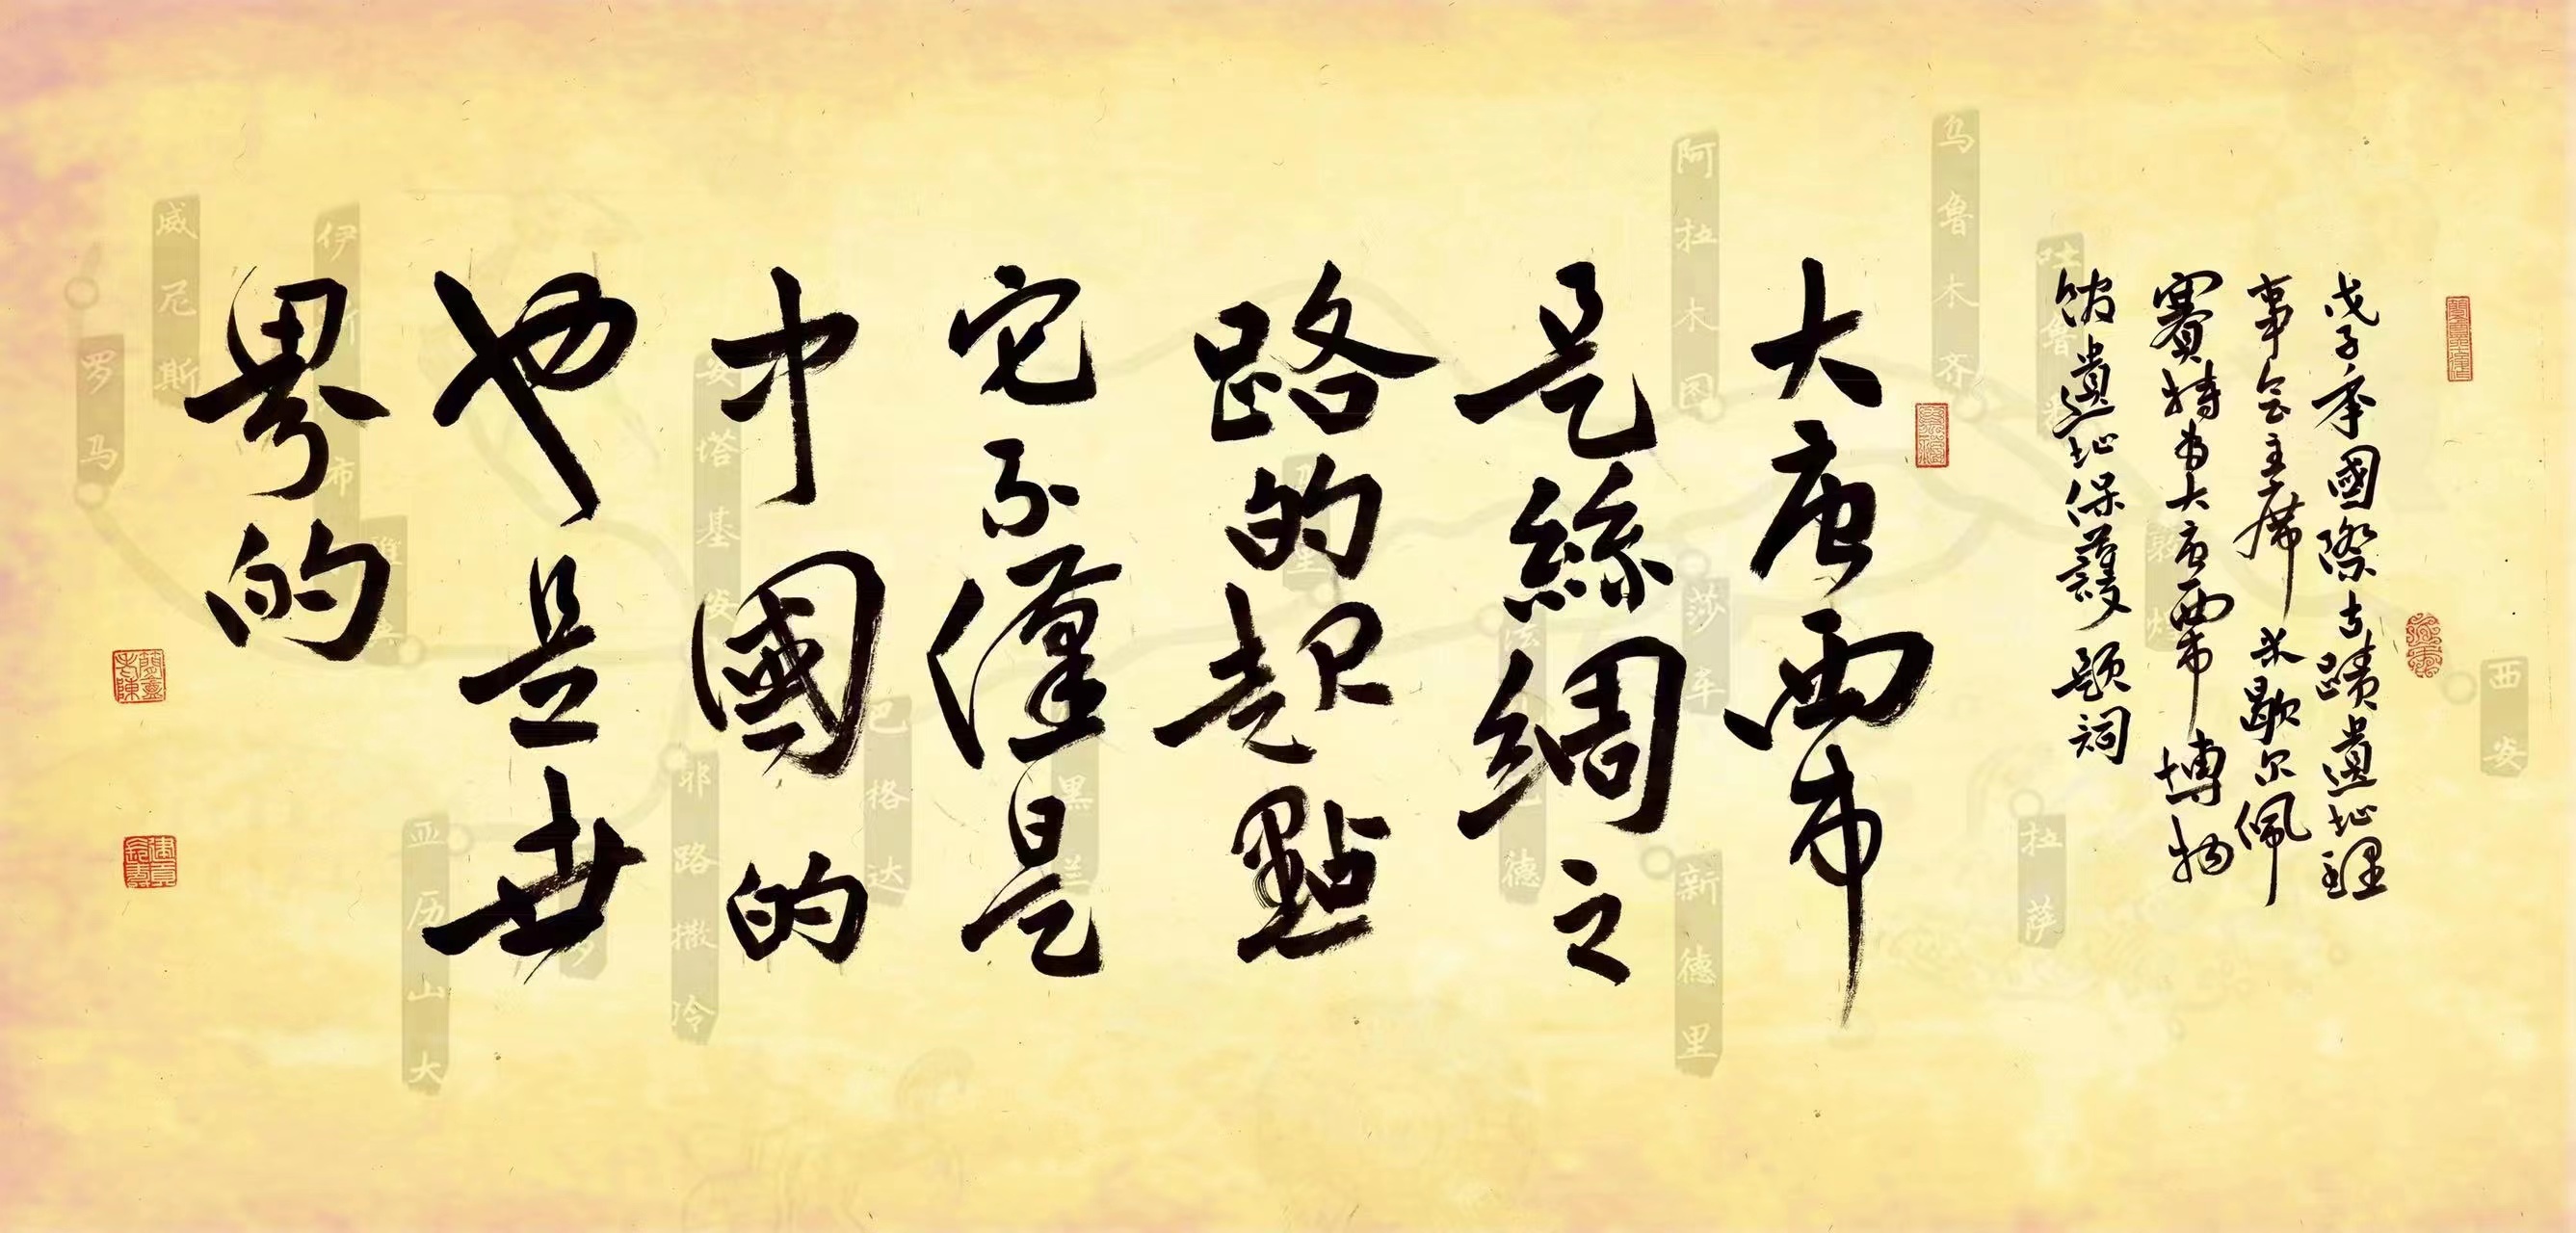 戊子年國際古蹟遺址理
事會主席 米歇尔佩
賽特为大唐西市博物
館遺址保護题词
大唐西市
是絲綢之
路的起點
它不僅是
中國的
也是世
界的
西安
拉萨
吐鲁
敦煌
乌鲁木齐
阿拉木图
莎车
新德里
巴格达
耶路撒冷
安塔基
亚历山大
伊斯布
雅典
威尼斯
罗马